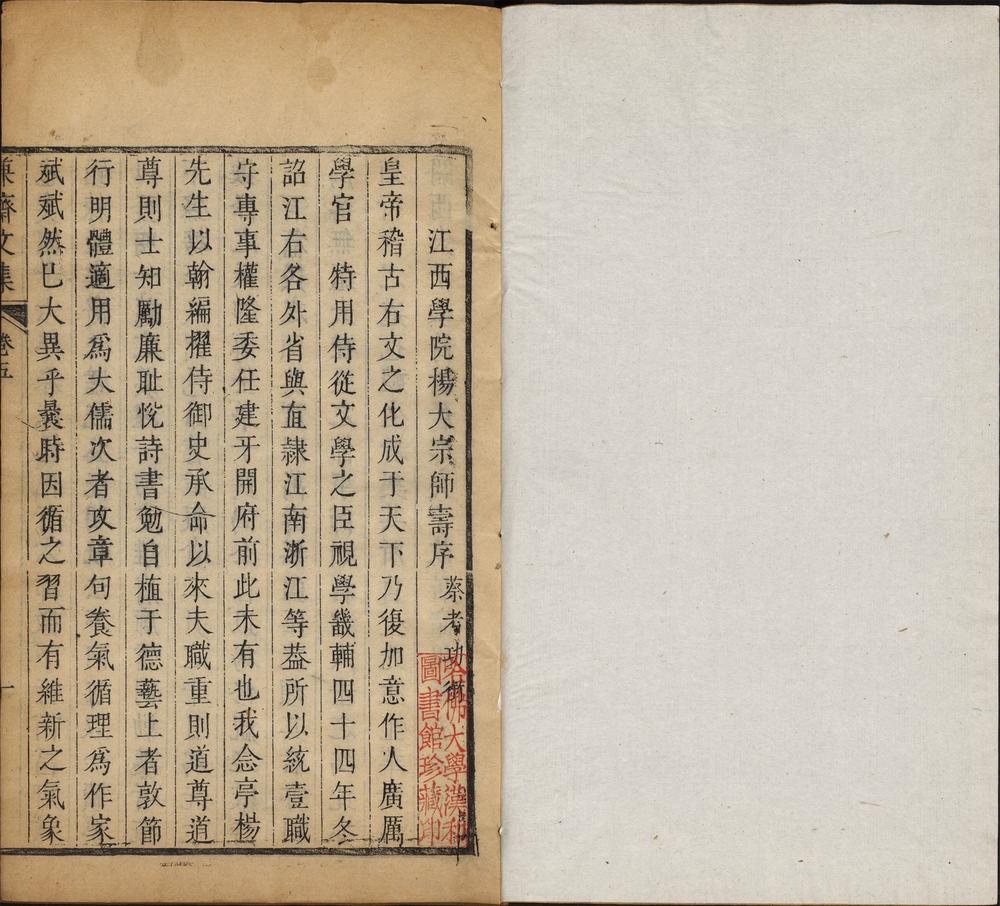 江西學院楊大宗師壽序 蔡考功徵
皇帝稽古右文之化成于天下乃復加意作人廣厲
學官 特用侍從文學之臣視學畿輔四十四年冬
詔江右各外省與直隷江南浙江等葢所以統壹職
守專事權隆委任建牙開府前此未有也我念亭楊
先生以翰編擢侍御史承命以來夫職重則道尊道
尊則士知勵廉耻悅詩書勉自植于德藝上者敦節
行明體適用爲大儒次者攻章句養氣循理爲作家
斌斌然已大異乎曩時因循之習而有維新之氣象
兼齋文集 卷五 一
哈佛大學漢和
圖書館珍藏印